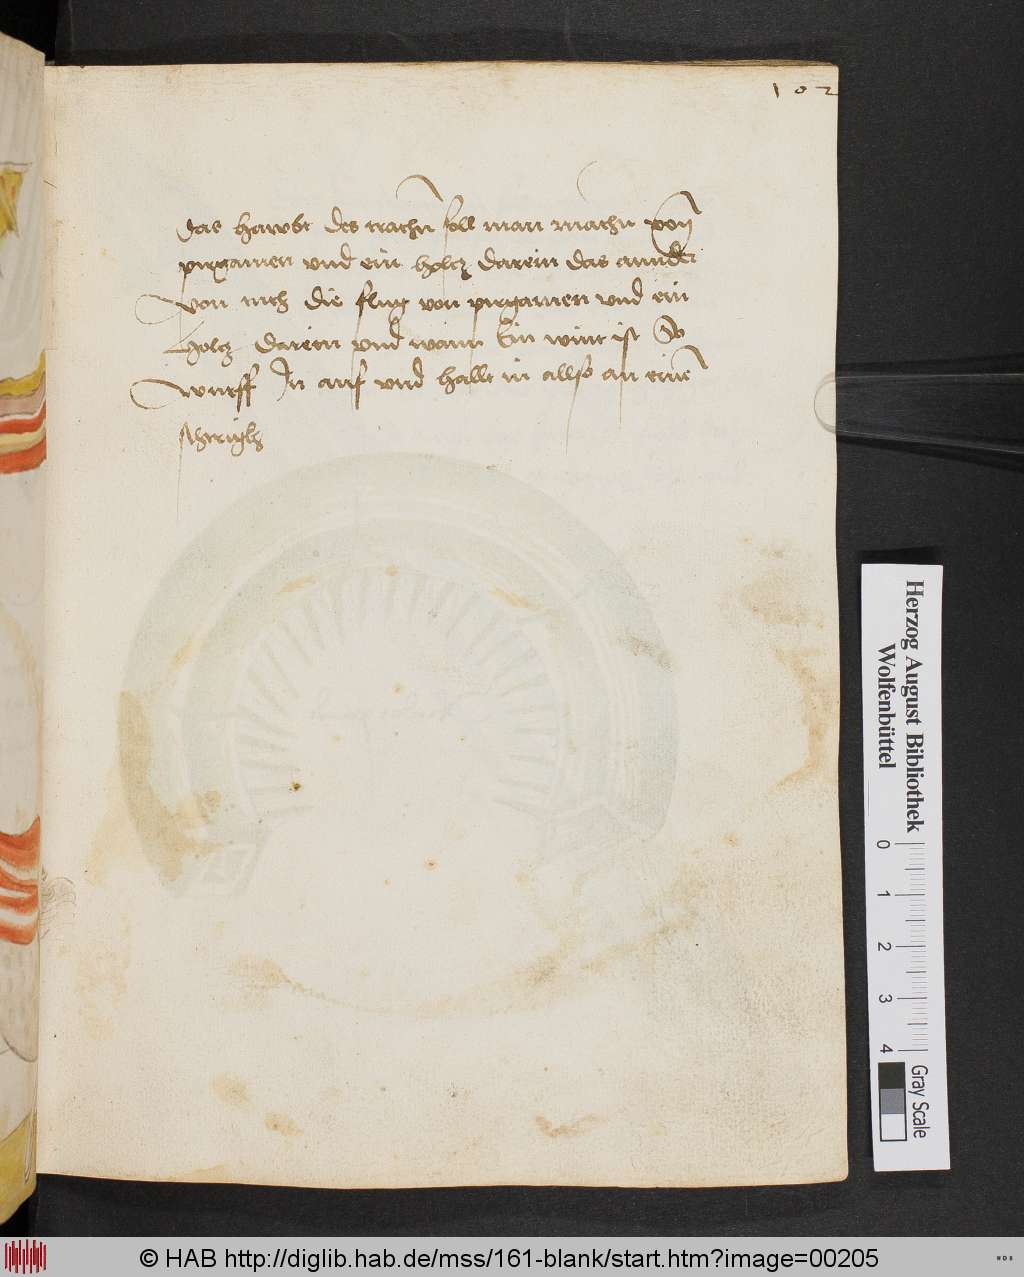 102
das hawbt des trachn soll man machn von
pirgamen vnd ein holcz darein das annder
von tuch die flug von pirgamen vnd ein
holcz darein vnd wann Ein wint ist So
wurff In auf vnd hallt in allso an eine
Herzog August Bibliothek
Wolfenbüttel
0 1 2 3 4
Gray Scale
© HAB http://diglib.hab.de/mss/161-blank/start.htm?image=00205